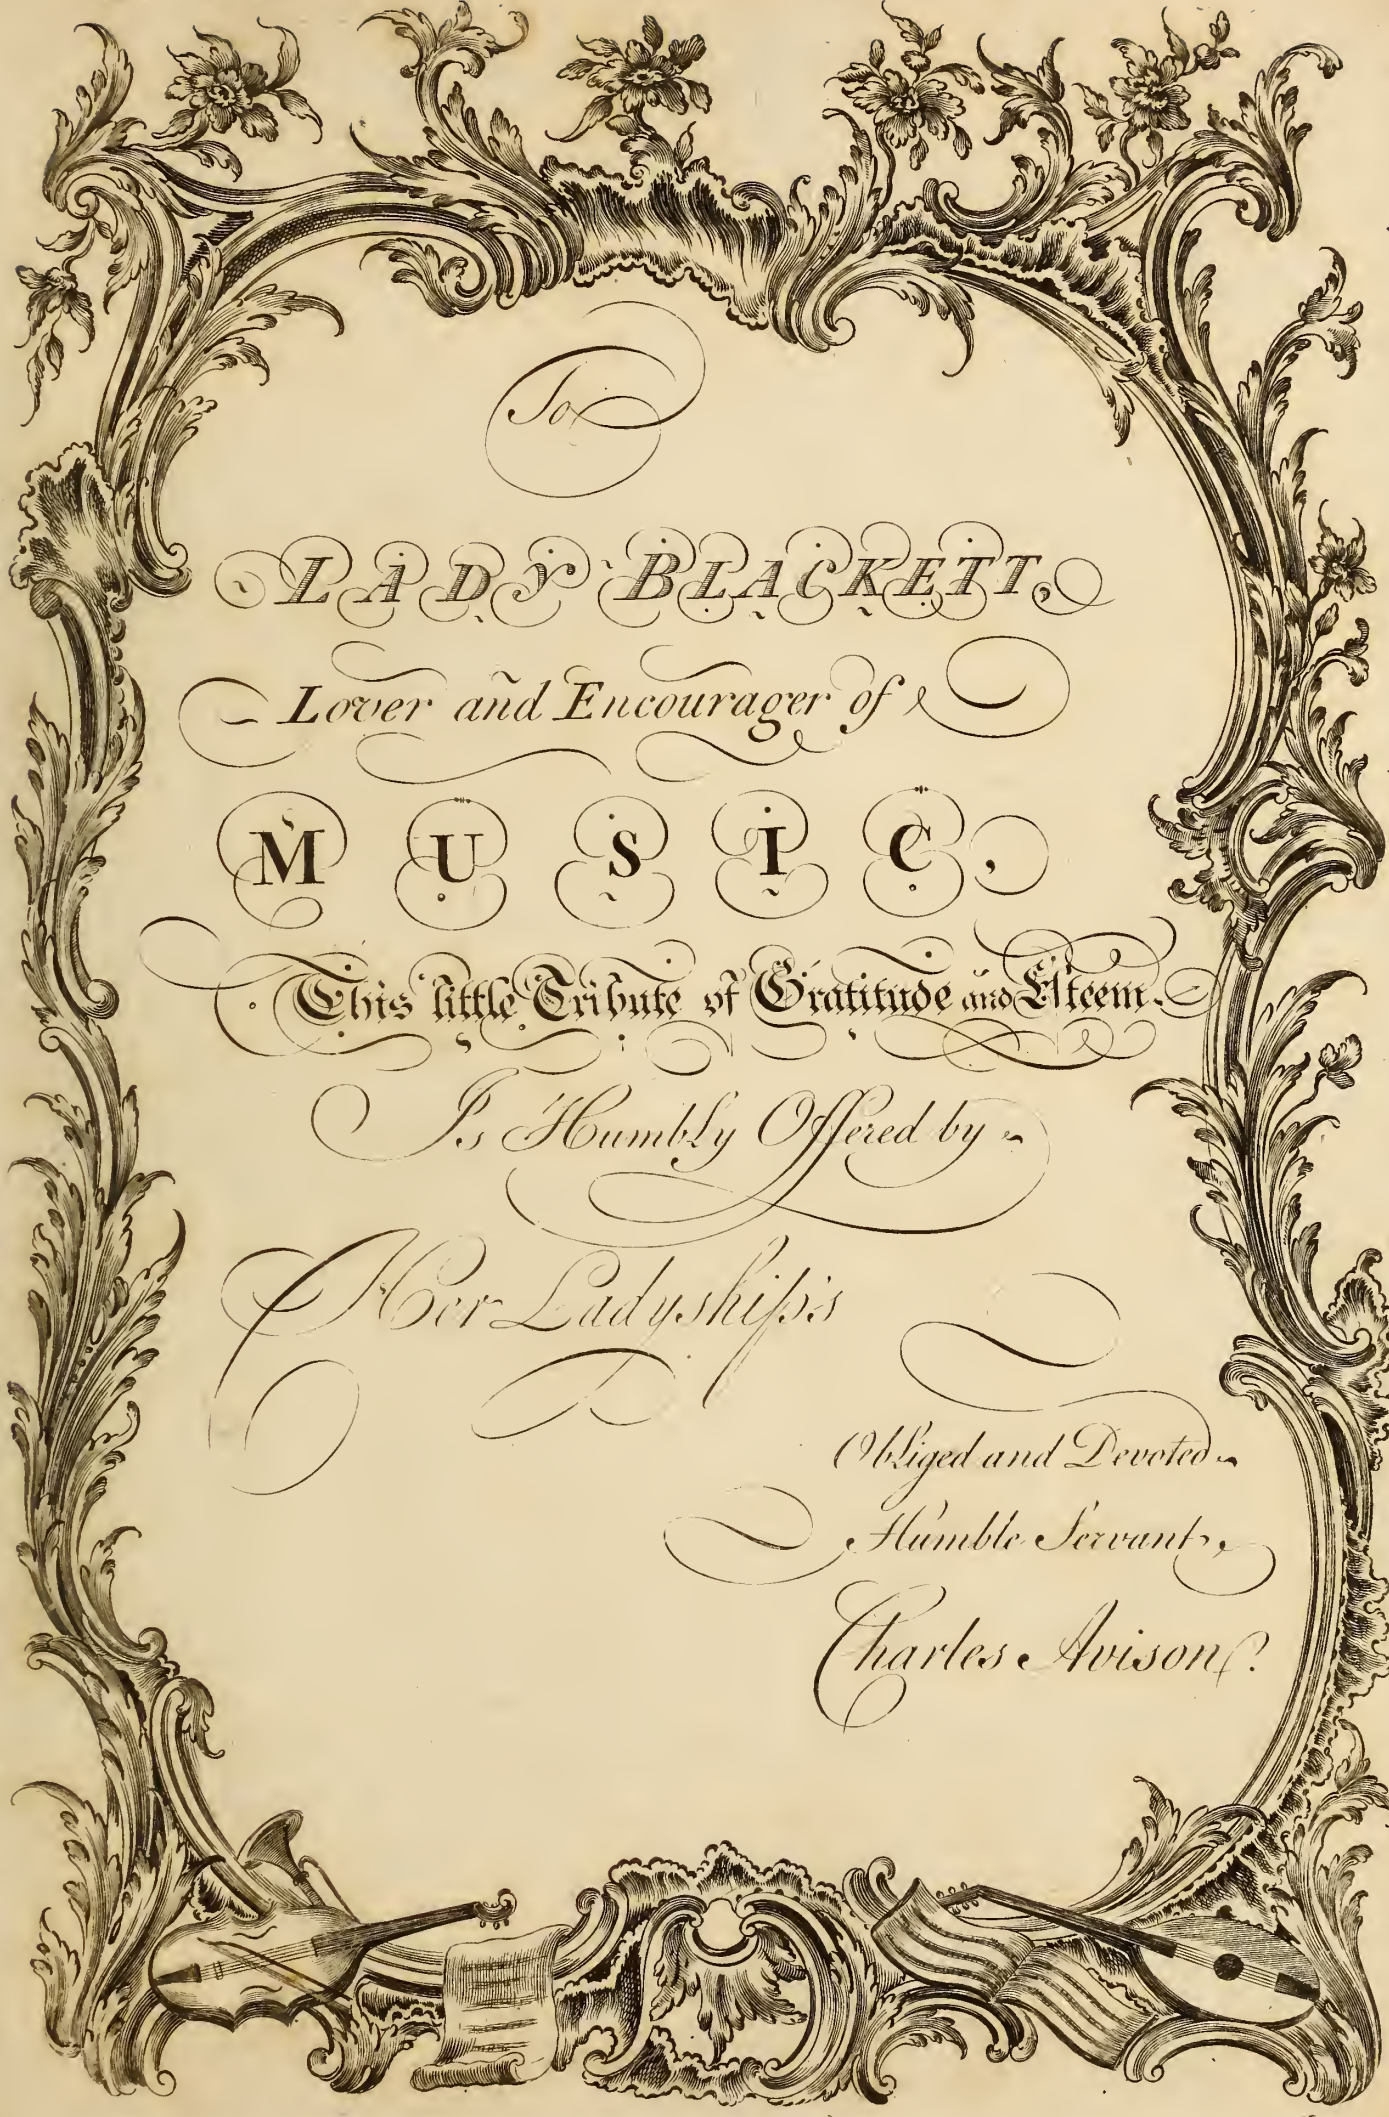 To
LADY BLACKETT,
Lover and Encourager of
MUSIC,
This little Tribute of Gratitude and Esteem.
Is Humbly Offered by
Her Ladyship's
Obliged and Devoted
Humble Servant,
Charles Avison.